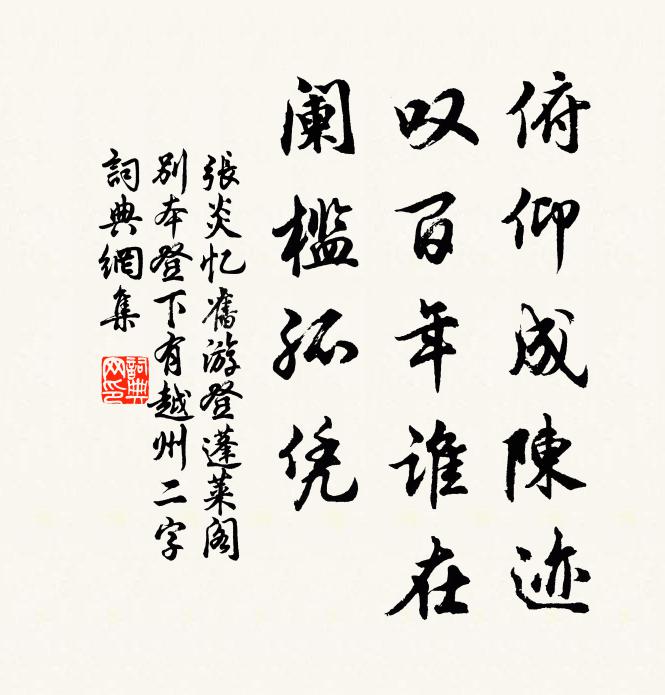 俯仰成陳迹
叹百年誰在
阑槛孤凭
張炎忆舊游登蓬莱阁
別本登下有越州二字
詞典網集
詞典网印